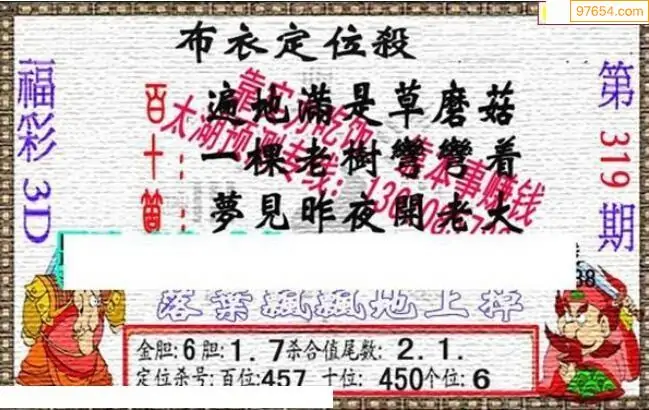 97654.com
布衣定位殺
福彩3D
第319期
百十
遍地滿是草磨菇
一棵老樹彎彎着
夢見昨夜開老大
靠实力吃饭 靠本事赚钱
太湖预测专线：
落葉飄飄地上掉
金胆:6胆:1.7杀合值尾数: 2.1.
定位杀号:百位:457 十位: 450个位:6